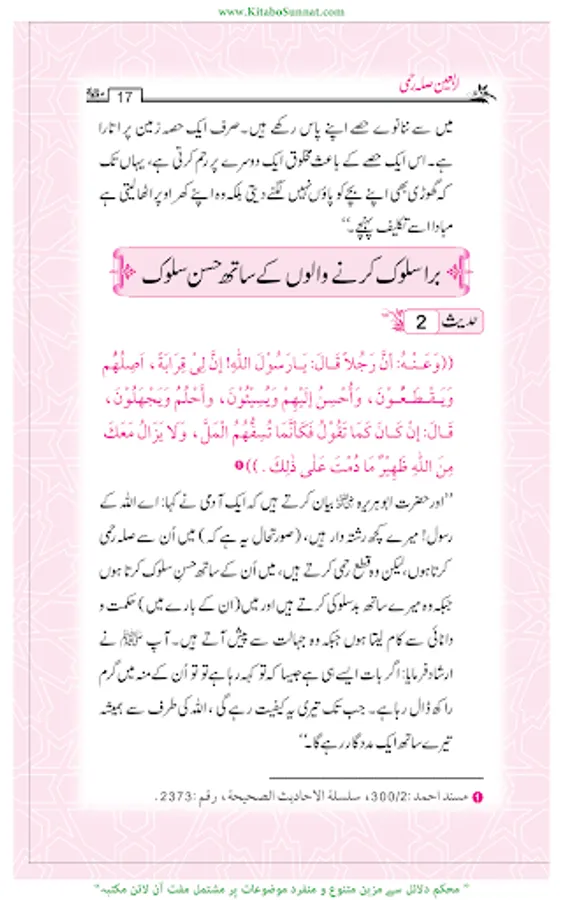 www.KitaboSunnat.com
اربعین صلہ رحمی
17
میں سے ننانوے حصے اپنے پاس رکھے ہیں۔ صرف ایک حصہ زمین پر اتارا
ہے۔ اس ایک حصے کے باعث مخلوق ایک دوسرے پر رحم کرتی ہے، یہاں تک
کہ گھوڑی بھی اپنے بچے کو پاؤں نہیں لگنے دیتی بلکہ وہ اپنے کھر اوپر اٹھا لیتی ہے
مبادا اسے تکلیف پہنچے۔“
برا سلوک کرنے والوں کے ساتھ حسن سلوک
حدیث 2
((وَعَنْهُ: أَنَّ رَجُلاً قَالَ: يَارَسُوْلَ اللهِ! إِنَّ لِيْ قِرَابَةً، اَصِلُهُم
وَيَقْطَعُوْنَ، وَأُحْسِنُ إِلَيْهِمْ وَيُسِيْئُوْنَ، وأَحْلُمُ وَيَجْهَلُوْنَ،
قَالَ: إِنْ كَانَ كَمَا تَقُوْلُ فَكَأَنَّمَا تُسِفُّهُمُ الْمَلَّ، وَلَا يَزَالُ مَعَكَ
مِنَ اللهِ ظَهِيْرٌ مَا دُمْتَ عَلٰى ذٰلِكَ .)) ❶
”اور حضرت ابو ہریرہ رضی اللہ عنہ بیان کرتے ہیں کہ ایک آدمی نے کہا: اے اللہ کے
رسول! میرے کچھ رشتہ دار ہیں، (صورتحال یہ ہے کہ) میں اُن سے صلہ رحمی
کرتا ہوں، لیکن وہ قطع رحمی کرتے ہیں، میں اُن کے ساتھ حسنِ سلوک کرتا ہوں
جبکہ وہ میرے ساتھ بدسلوکی کرتے ہیں اور میں (ان کے بارے میں) حکمت و
دانائی سے کام لیتا ہوں جبکہ وہ جہالت سے پیش آتے ہیں۔ آپ ﷺ نے
ارشاد فرمایا: اگر بات ایسے ہی ہے جیسا کہ تو کہہ رہا ہے تو تو اُن کے منہ میں گرم
راکھ ڈال رہا ہے۔ جب تک تیری یہ کیفیت رہے گی، اللہ کی طرف سے ہمیشہ
تیرے ساتھ ایک مددگار رہے گا۔“
❶ مسند احمد: 300/2، سلسلة الاحاديث الصحيحة، رقم: 2373.
" محکم دلائل سے مزین متنوع و منفرد موضوعات پر مشتمل مفت آن لائن مکتبہ "